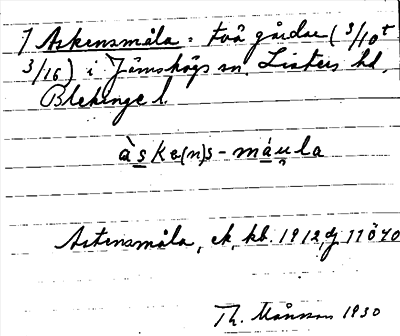 7 Askensmåla = två gårdar (3/10 t
3/16) i Jämshögs sn, Listers hd,
Blekinge l.
àske(n)s-máu̯la
Astensmåla, ek, kb. 1912 11040
Th. Månsson 1930